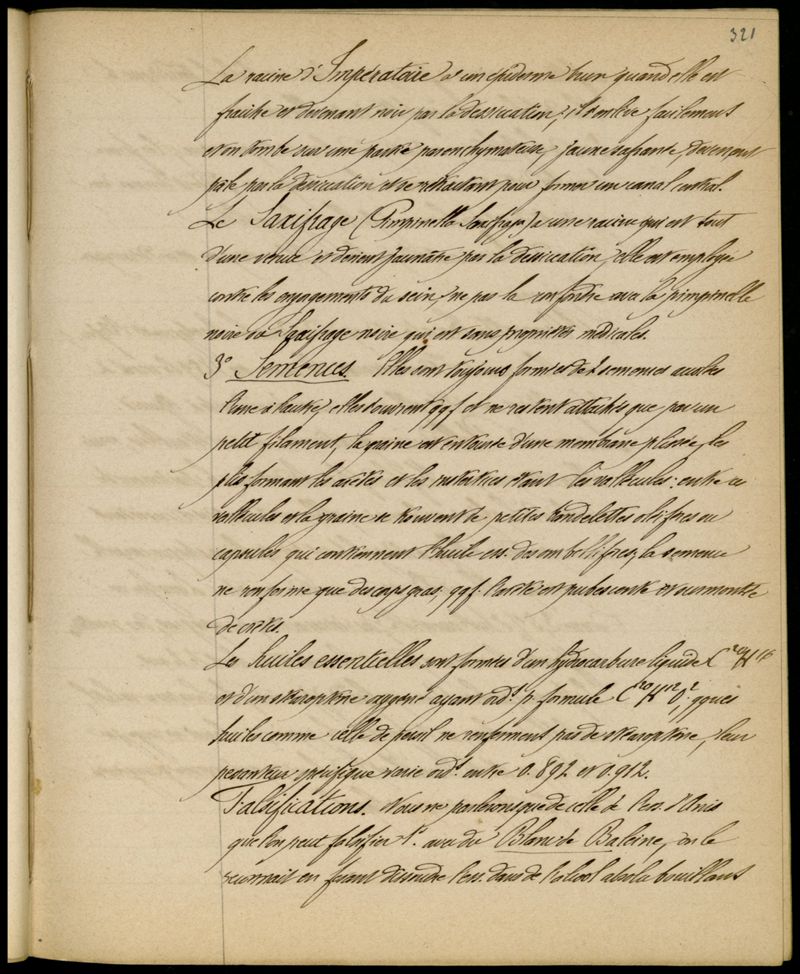 321
La racine d'Impératoire a un épiderme brun quand elle est
fraîche et devenant noir par la dessication, il s'enlève facilement
et on tombe sur une partie parenchymateuse, jaune safranée, devenant
pâle par la dessication et se rétractant pour former un canal central.
Le Saxifrage (Pimpinella Saxifraga) a une racine qui est tout
d'une venue et devient jaunâtre par la dessication, elle est employée
contre les engorgements du sein, ne pas la confondre avec la pimpinelle
noire ou Saxifrage noire qui est sans propriétés médicales.
3° Semences. Elles sont toujours formées de 2 semences accolées
l'une à l'autre, elles s'ouvrent qqf et ne restent attachées que par un
petit filament, la graine est entourée d'une membrane plissée, les
plis formant les arêtes et les interstices étant les vallécules : entre ces
vallécules et la graine se trouvent de petites bandelettes oléifères ou
capsules qui contiennent l'huile ess. des ombellifères, la semence
ne renferme que des corps gras, qqf. l'arête est pubescente et surmontée
de crêtes.
Les huiles essentielles sont formées d'un hydrocarbure liquide C²⁰H¹⁶
et d'un stéaroptène oxygéné ayant ordt. p. formule C²⁰H¹²O², qques
huiles comme celle de persil ne renferment pas de stéaroptène, leur
pesanteur spécifique varie ordt. entre 0.892 et 0.912.
Falsifications. Nous ne parlerons que de celle de l'ess. d'Anis
que l'on peut falsifier 1° avec du Blanc de Baleine, on le
reconnait en faisant dissoudre l'ess. dans de l'alcool absolu bouillant